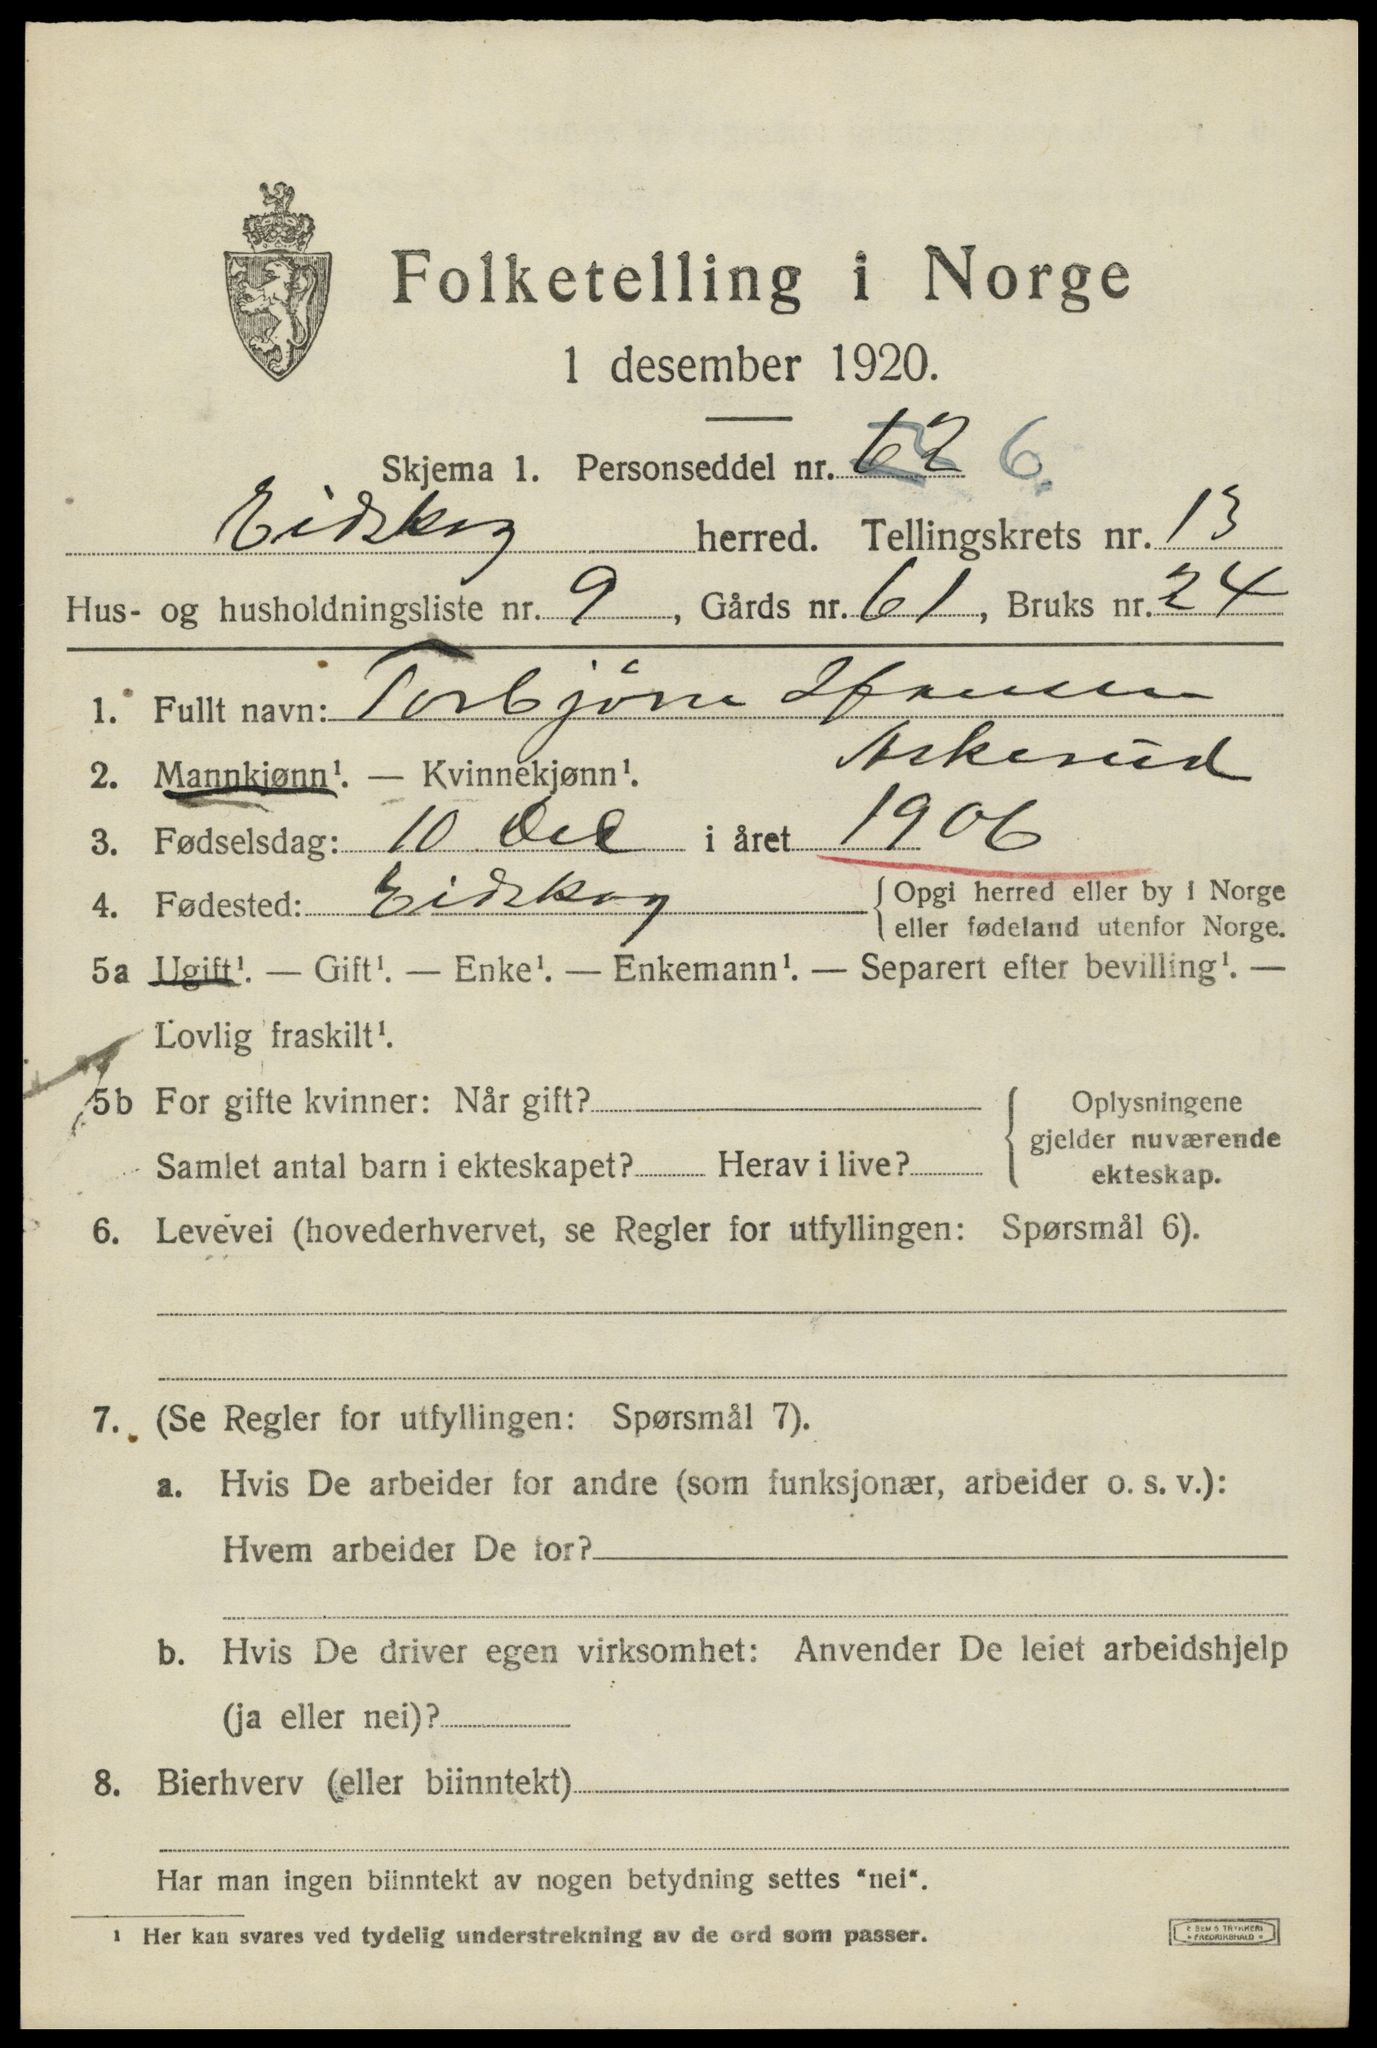 Folketelling i Norge
1 desember 1920.
Skjema 1. Personseddel nr. 62 6.
Eidskog herred. Tellingskrets nr. 13
Hus- og husholdningsliste nr. 9, Gårds nr. 61, Bruks nr. 24
1. Fullt navn: Torbjörn
Askerud
2. Mannkjønn¹. — Kvinnekjønn¹.
3. Fødselsdag: 10 Dec i året 1906
4. Fødested: Eidskog { Opgi herred eller by i Norge
eller fødeland utenfor Norge.
5a Ugift¹. — Gift¹. — Enke¹. — Enkemann¹. — Separert efter bevilling¹. —
Lovlig fraskilt¹.
5b For gifte kvinner: Når gift?
Samlet antal barn i ekteskapet? Herav i live?
Oplysningene
gjelder nuværende
ekteskap.
6. Levevei (hovederhvervet, se Regler for utfyllingen: Spørsmål 6).
7. (Se Regler for utfyllingen: Spørsmål 7).
a. Hvis De arbeider for andre (som funksjonær, arbeider o. s. v.):
Hvem arbeider De for?
b. Hvis De driver egen virksomhet: Anvender De leiet arbeidshjelp
(ja eller nei)?
8. Bierhverv (eller biinntekt)
Har man ingen biinntekt av nogen betydning settes "nei".
¹ Her kan svares ved tydelig understrekning av de ord som passer.
E SEM'S TRYKKERI
FREDRIKSHALD